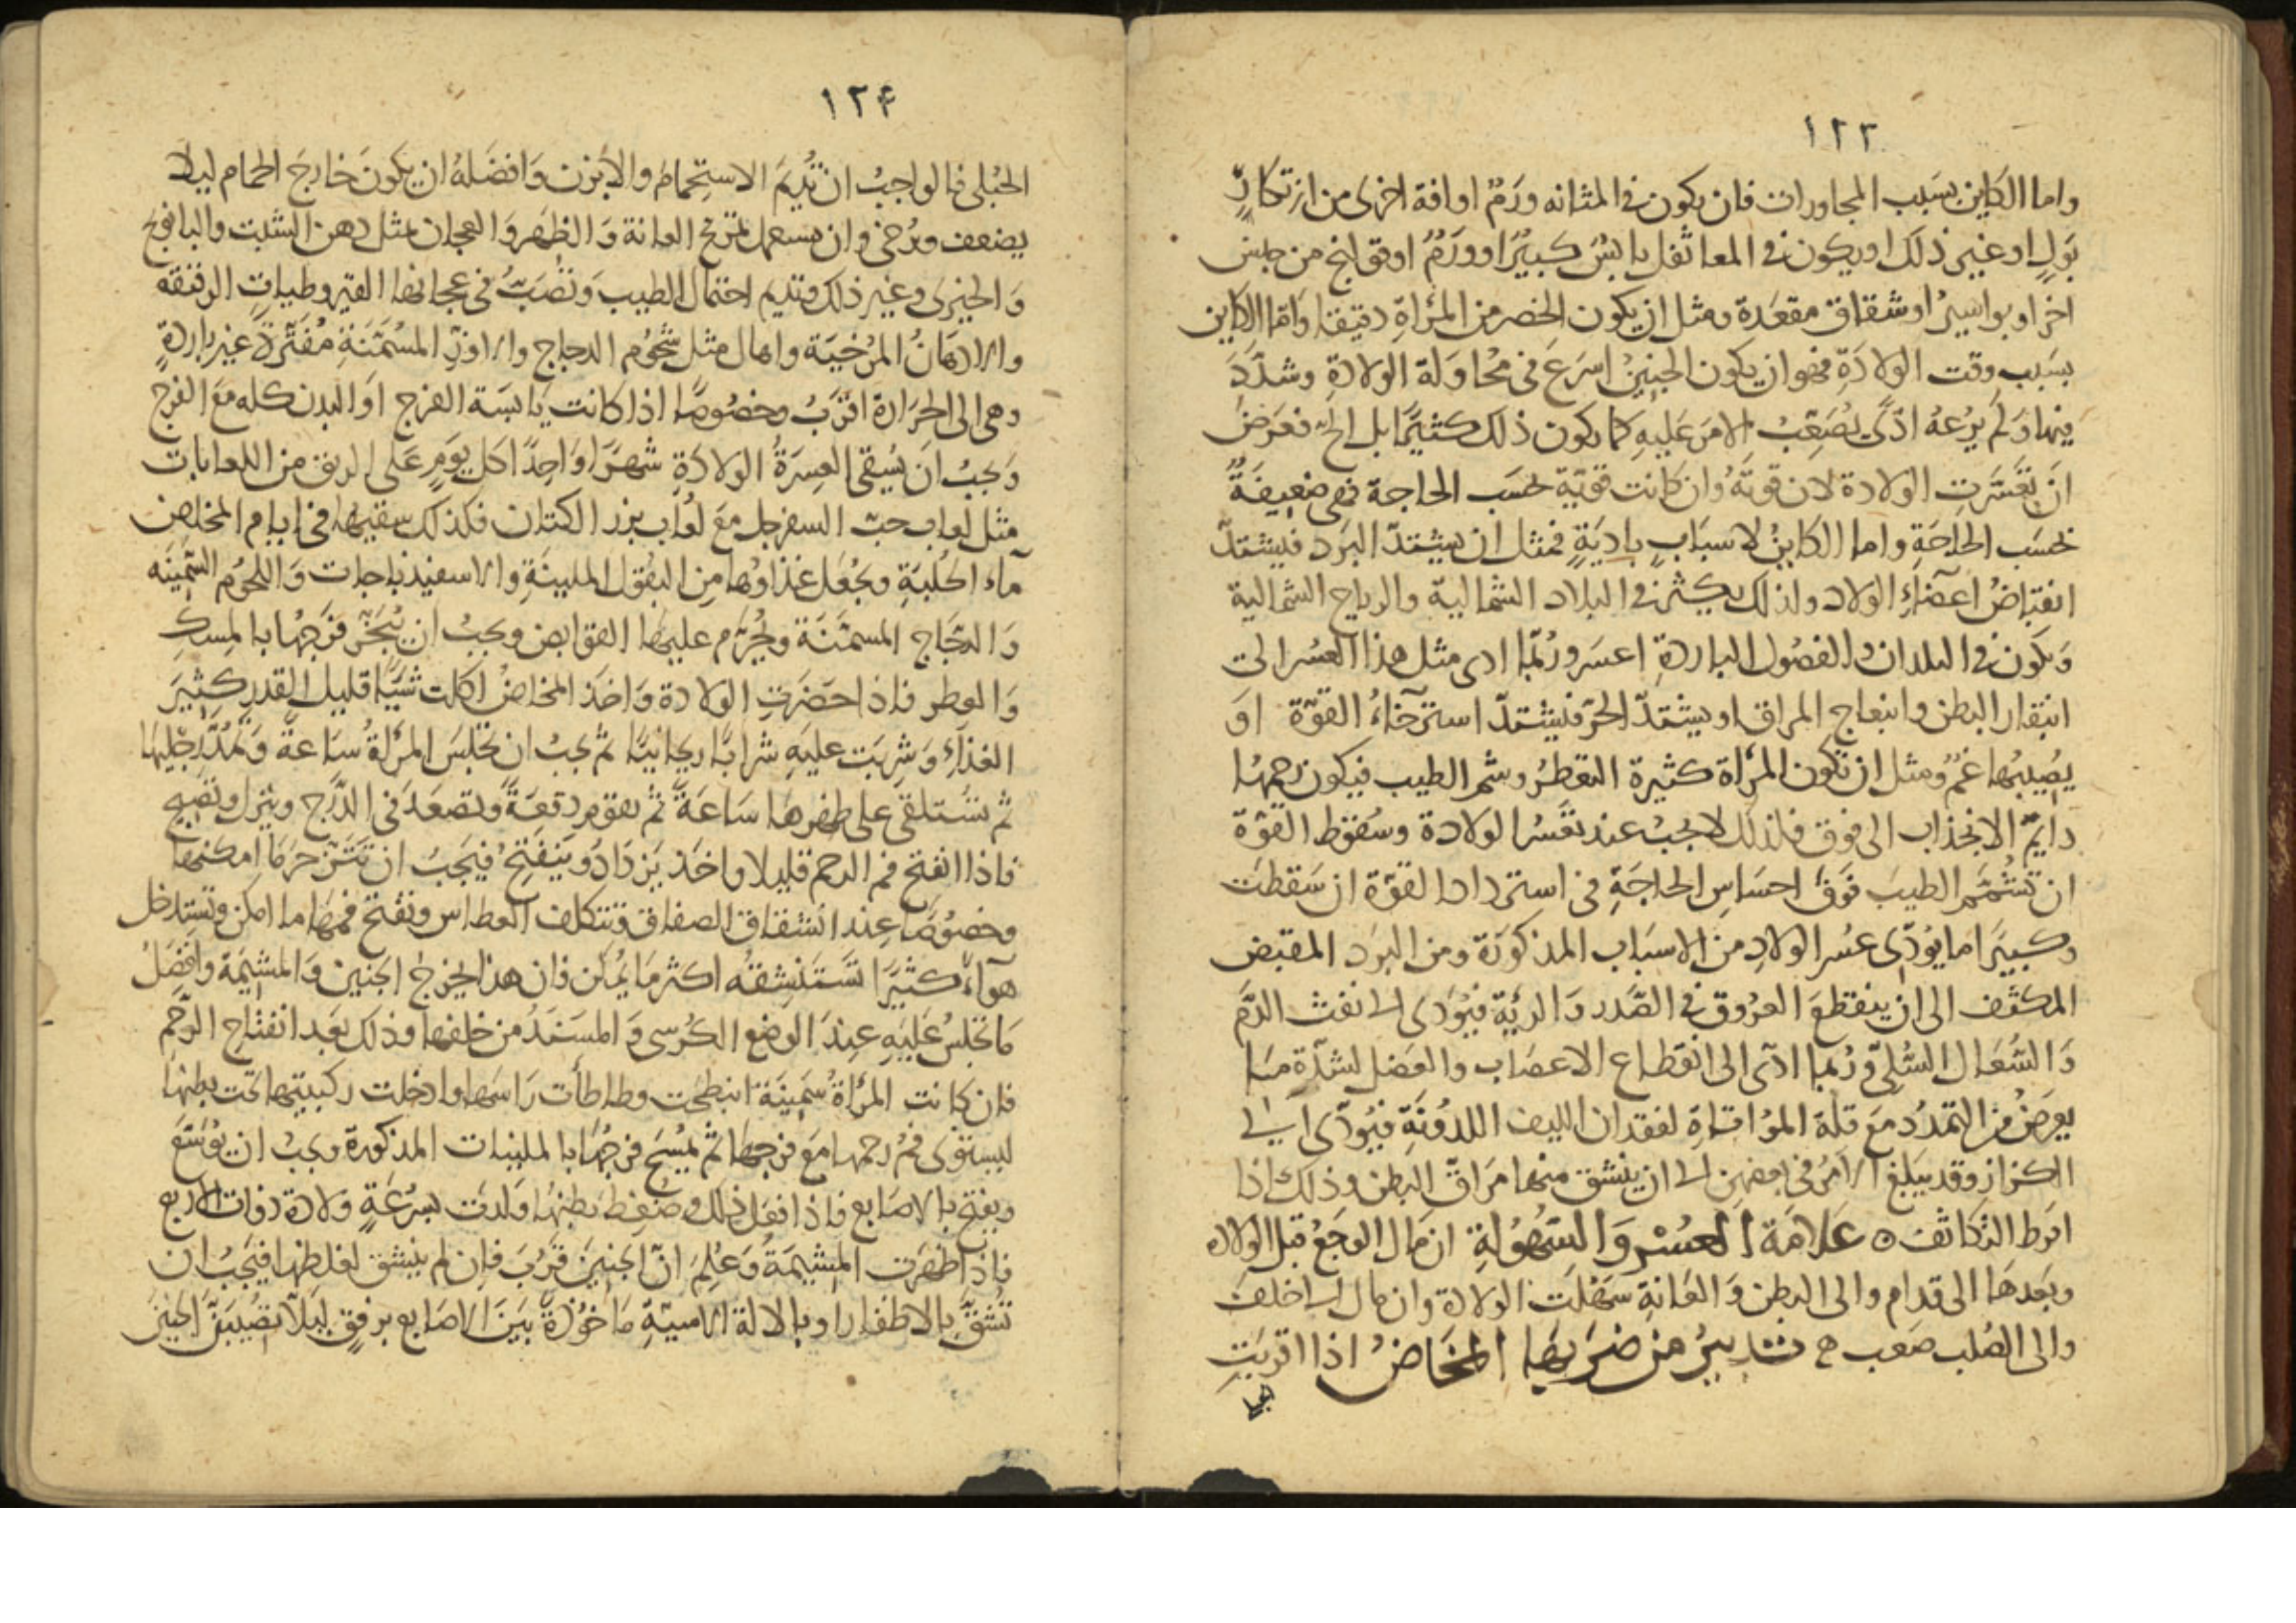 ١٢٣
واما الكاين بسبب المجاورات فان يكون فى المثانه ورم او افة اخرى من ارتكاز
بول او غير ذلك او يكون فى المعا ثفل يابس كبير او ورم او قولنج من جنس
اخر او بواسير او شقاق مقعدة ومثل ان يكون الخصر من المرأة دقيقا واما الكاين
بسبب وقت الولادة فهو ان يكون الجنين اسرع فى محاولة الولادة وشدد
فيها ولم يرعه اذى يصعب الامر عليه كما يكون ذلك كثيرا بل فعرض
ان تعسرت الولادة لان قوته وان كانت قوية بحسب الحاجة فهى ضعيفة
بحسب الحاجة واما الكاين لاسباب بادية فمثل ان يشتد البرد فيشتد
انقباض اعضاء الولاد ولذلك يكثر فى البلاد الشمالية والرياح الشمالية
ويكون فى البلدان والفصول الباردة اعسر وربما ادى مثل هذا العسر الى
انبقار البطن وانبعاج المراق او يشتد الحر فيشتد استرخاء القوة او
يصيبها غم ومثل ان تكون المرأة كثيرة التعطر وشم الطيب فيكون رحمها
دايم الانجذاب الى فوق فلذلك لا يجب عند تعسر الولادة وسقوط القوة
ان تشمم الطيب فوق احساس الحاجة فى استرداد القوة ان سقطت
وكبيرا ما يودى عسر الولاد من الاسباب المذكورة ومن البرد المقبض
المكثف الى ان ينقطع العروق فى الصدر والرية فيودى الى نفث الدم
والسعال السلى وربما ادى الى انقطاع الاعصاب والعضل لشدة ما
يعرض من التمدد مع قلة المواتاة لفقدان الليف اللدونة فيودى الى
الكزاز وقد يبلغ الامر فى بعضهن الى ان ينشق منها مراق البطن وذلك اذا
افرط التكاثف ه علامة العسر والسهولة ان مال الوجع قبل الولاد
وبعدها الى قدام والى البطن والعانة سهلت الولادة وان مال الى خلف
والى الصلب صعب ه تدبير من ضربها المخاض اذا اقربت
١٢۴
الحبلى فالواجب ان تديم الاستحمام والابزن وافضله ان يكون خارج الحمام ليلا
يضعف ويرخى وان يستعمل تمريخ العانة والظهر والعجان بمثل دهن الشبت والبابونج
والخيرى وغير ذلك وتديم احتمال الطيب وتصب فى عجانها القيروطيات الرقيقه
والادهان المرخية واهال مثل شحوم الدجاج والاوز المسمنة مفترة غير باردة
وهى الى الحرارة اقرب وخصوصا اذا كانت يابسة الفرج او البدن كله مع الفرج
ويجب ان يسقى العسرة الولادة شهرا واحدا كل يوم على الريق من اللعابات
مثل لعاب حب السفرجل مع لعاب بزر الكتان فكذلك سقيها فى ايام المخاض
ماء الحلبة ويجعل غذاوها من البقول الملينة والاسفيذباجات واللحوم السمينه
والدجاج المسمنة ويحرم عليها القوابض ويجب ان يبخر فرجها بالمسك
والعطر فاذا حضرت الولادة واخذ المخاض اكلت شيا قليل القدر كثير
الغذاء وشربت عليه شرابا ريحانيا ثم يجب ان تجلس المرأة ساعة وتمد رجليها
ثم تستلقى على ظهرها ساعة ثم تقوم دفعة وتصعد فى الدرج وينزل وتصيح
فاذا انفتح فم الرحم قليلا واخذ يزداد وينفتح فيجب ان تتزحر ما امكنها
وخصوصا عند انشقاق الصفاق وتتكلف العطاس وتفتح فمها ما امكن وتستدخل
هواء كثيرا تستنشقه اكثر ما يمكن فان هذا يخرج الجنين والمشيمة وافضل
ما تجلس عليه عند الوضع الكرسى والمسند من خلفها وذلك بعد انفتاح الرحم
فان كانت المرأة سمينة انبطحت وطاطأت راسها وادخلت ركبيتها تحت بطنها
ليستوى فم رحمها مع فرجها ثم يمسح فرجها بالملينات المذكورة ويجب ان يوسع
ويفتح بالاصابع فاذا فعل ذلك وضغط بطنها ولدت بسرعة ولادة ذوات الاربع
فاذا ظهرت المشيمة وعلم ان الجنين قرب فان لم ينشق لغلظها فيجب ان
تشق بالاظفار او بالالة الاسية ماخوذة بين الاصابع برفق ليلا تصيبن الجنين